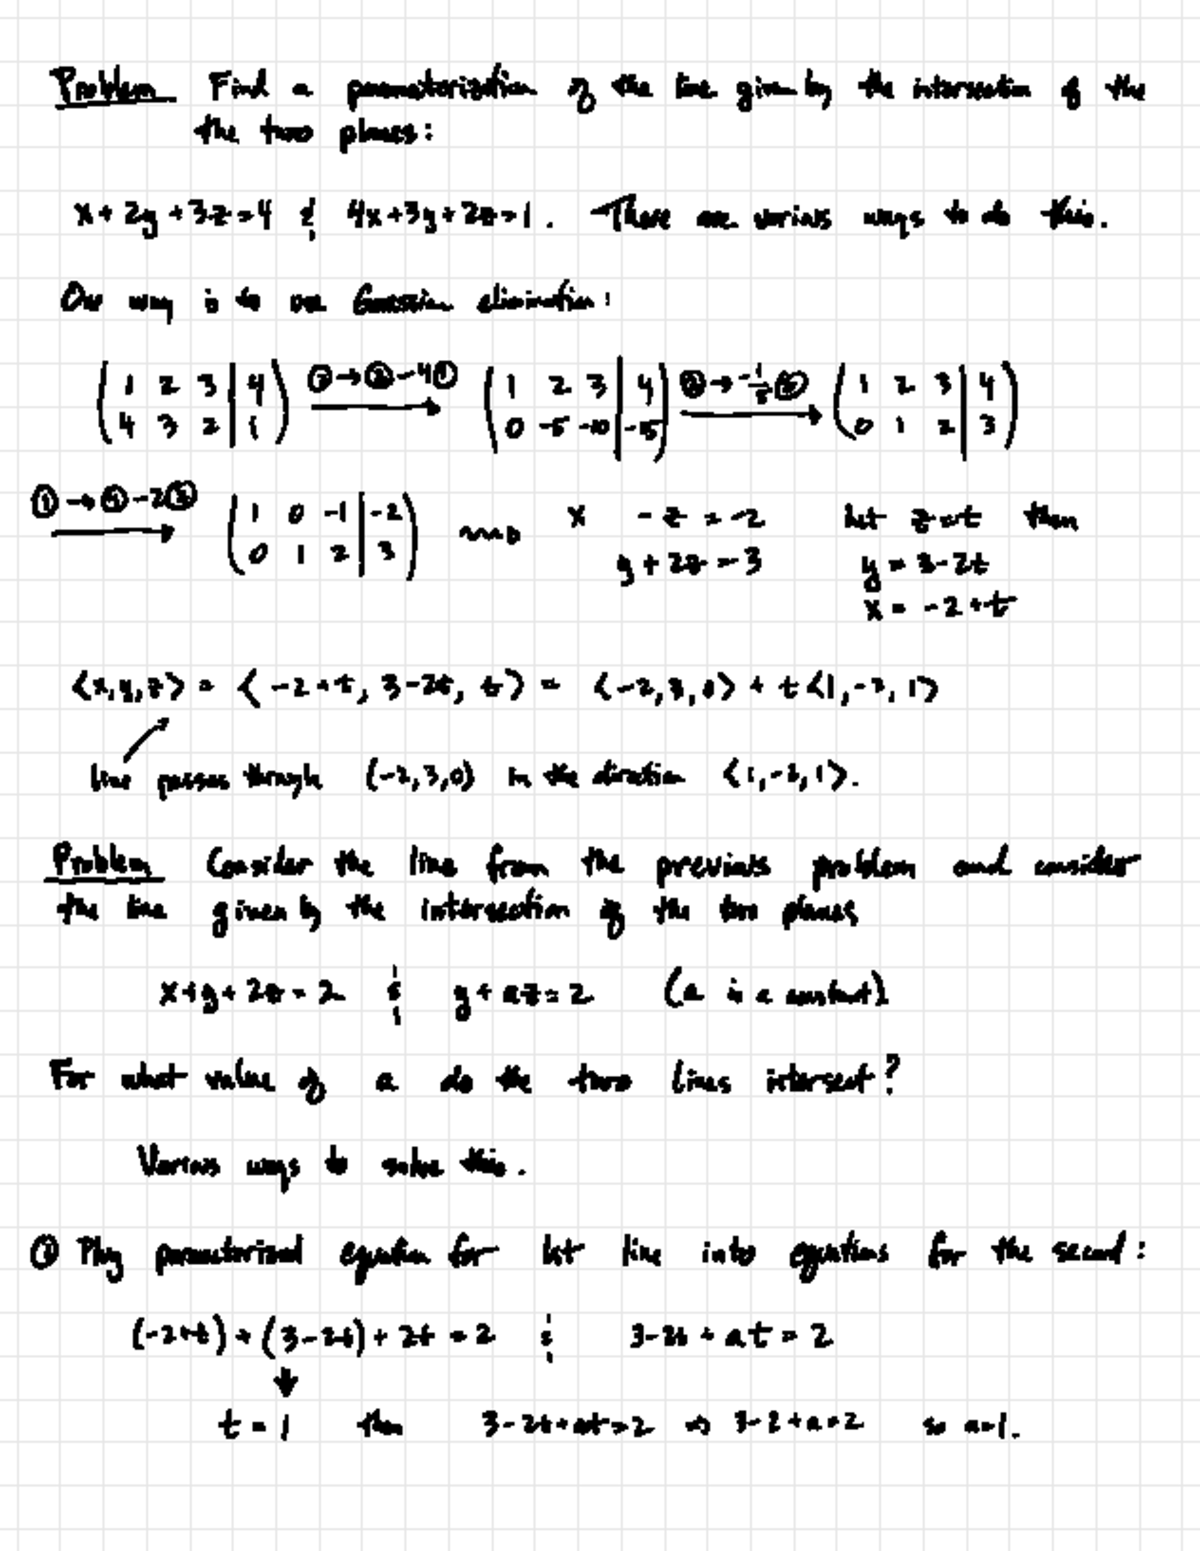 Problem Find a parametrization of the line given by the intersection of the
the two planes:
x + 2y + 3z = 4 & 4x + 3y + 2z = 1. There are various ways to do this.
One way is to use Gaussian elimination:
( 1 2 3 | 4 ) ②→②-4① ( 1 2 3 | 4 ) ②→-1/5② ( 1 2 3 | 4 )
( 4 3 2 | 1 ) ( 0 -5 -10 | -15 ) ( 0 1 2 | 3 )
①→①-2② ( 1 0 -1 | -2 ) x - z = -2 Let z = t then
( 0 1 2 | 3 ) y + 2z = 3 y = 3-2t
x = -2+t
⟨x,y,z⟩ = ⟨-2+t, 3-2t, t⟩ = ⟨-2,3,0⟩ + t⟨1,-2,1⟩
line passes through (-2,3,0) in the direction ⟨1,-2,1⟩.
Problem Consider the line from the previous problem and consider
the line given by the intersection of the two planes
x+y+2z = 2 & y + az = 2 (a is a constant)
For what value of a do the two lines intersect?
Various ways to solve this.
① Plug parametrized equation for 1st line into equations for the second:
(-2+t) + (3-2t) + 2t = 2 & 3-2t + at = 2
↓
t = 1 then 3-2t+at=2 ⇒ 3-2+a=2 so a=1.